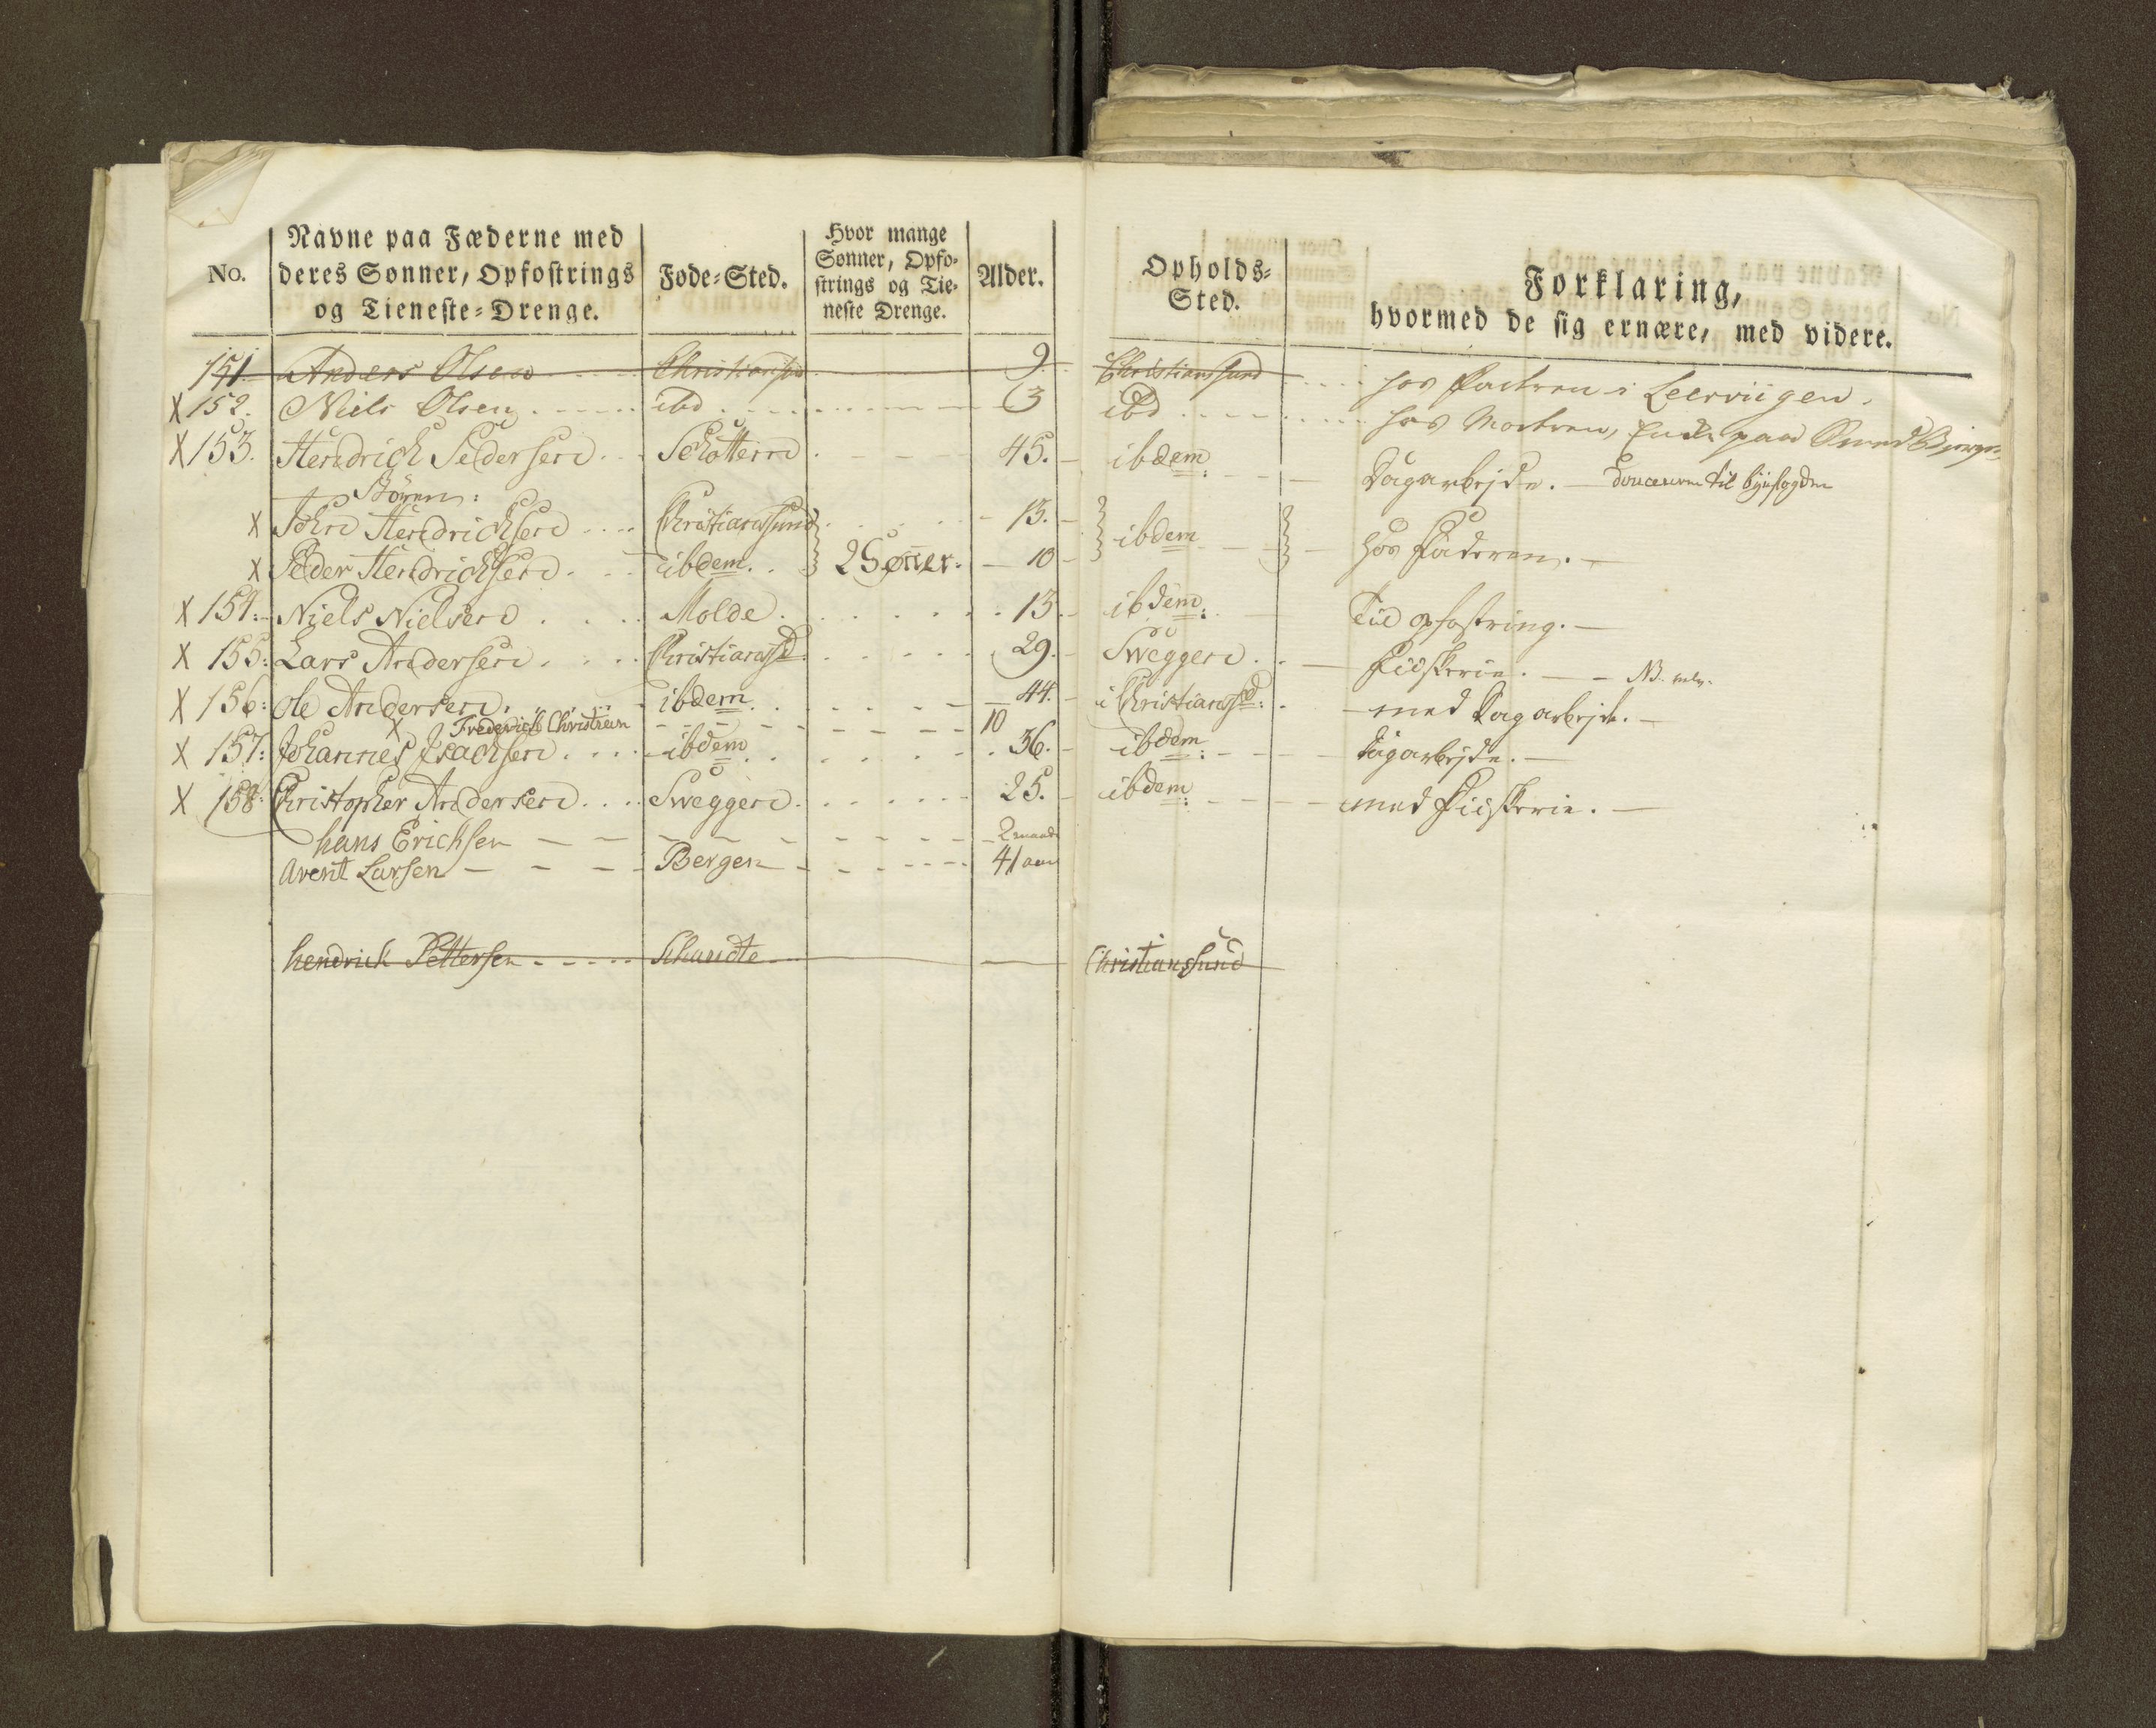 No.
Navne paa Fæderne med
deres Sønner, Opfostrings
og Tieneste-Drenge.
Føde-Sted.
Hvor mange
Sønner, Opfo-
strings og Tie-
neste Drenge.
Alder.
Opholds-
Sted.
Forklaring,
hvormed de sig ernære, med videre.
151. Anders Olsen Christiansund 9. Christianssund hos Fadren i Leervíigen.
X 152. Niels Olsen ibd 3 ibd hos Modren, paa
X 153. Hendrich Pedersen Schottern 45. ibdem Dagarbejde. til byefogden
Sönner:
X John Hendrichsen Christiansund 13. ibdem hos Faderen.
X Peder Hendrichsen ibdem 2 Sønner. 10
X 154: Niels Nielsen Molde 13 ibdem Til opfostring.
X 155: Lars Andersen Christiansd 29. Sweggen Fiskerie. NB.
X 156: Ole Andersen ibdem 44. i Christiansd: med Dagarbejde.
X Frederich Christian 10
X 157: Johannes Isachsen ibdem 36. ibdem Dagarbejde.
X 158: Christopher Andersen Sweggen 25. ibdem med Fiskerie.
hans Erichsen 2 maand
Arent Larsen Bergen 41 aar
hendrich Pettersen Christianssund